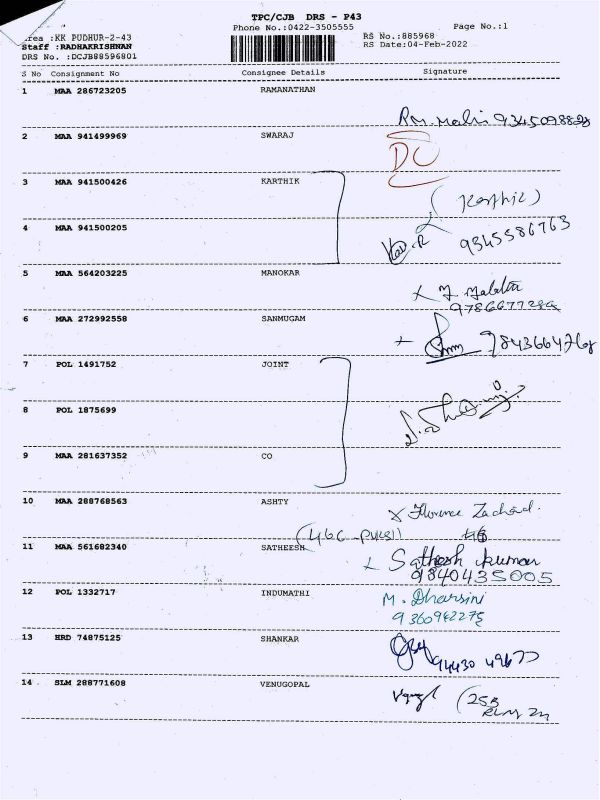 TPC/CJB DRS - P43
Phone No.:0422-3505555
Page No.:1
Area :KK PUDHUR-2-43
RS No.:885968
Staff :RADHAKRISHNAN
RS Date:04-Feb-2022
DRS No. :DCJB88596801
S No Consignment No Consignee Details Signature
1 MAA 286723205 RAMANATHAN
2 MAA 941499969 SWARAJ
DC
3 MAA 941500426 KARTHIK
(Karthik)
4 MAA 941500205
9345586763
5 MAA 564203225 MANOKAR
6 MAA 272992558 SANMUGAM
7 POL 1491752 JOINT
8 POL 1875699
9 MAA 281637352 CO
10 MAA 288768563 ASHTY
x Florence
11 MAA 561682340 SATHEESH
Satheesh kumar
9840435005
12 POL 1332717 INDUMATHI
M. Dharsini
9360942275
13 HRD 74875125 SHANKAR
14 SLM 288771608 VENUGOPAL